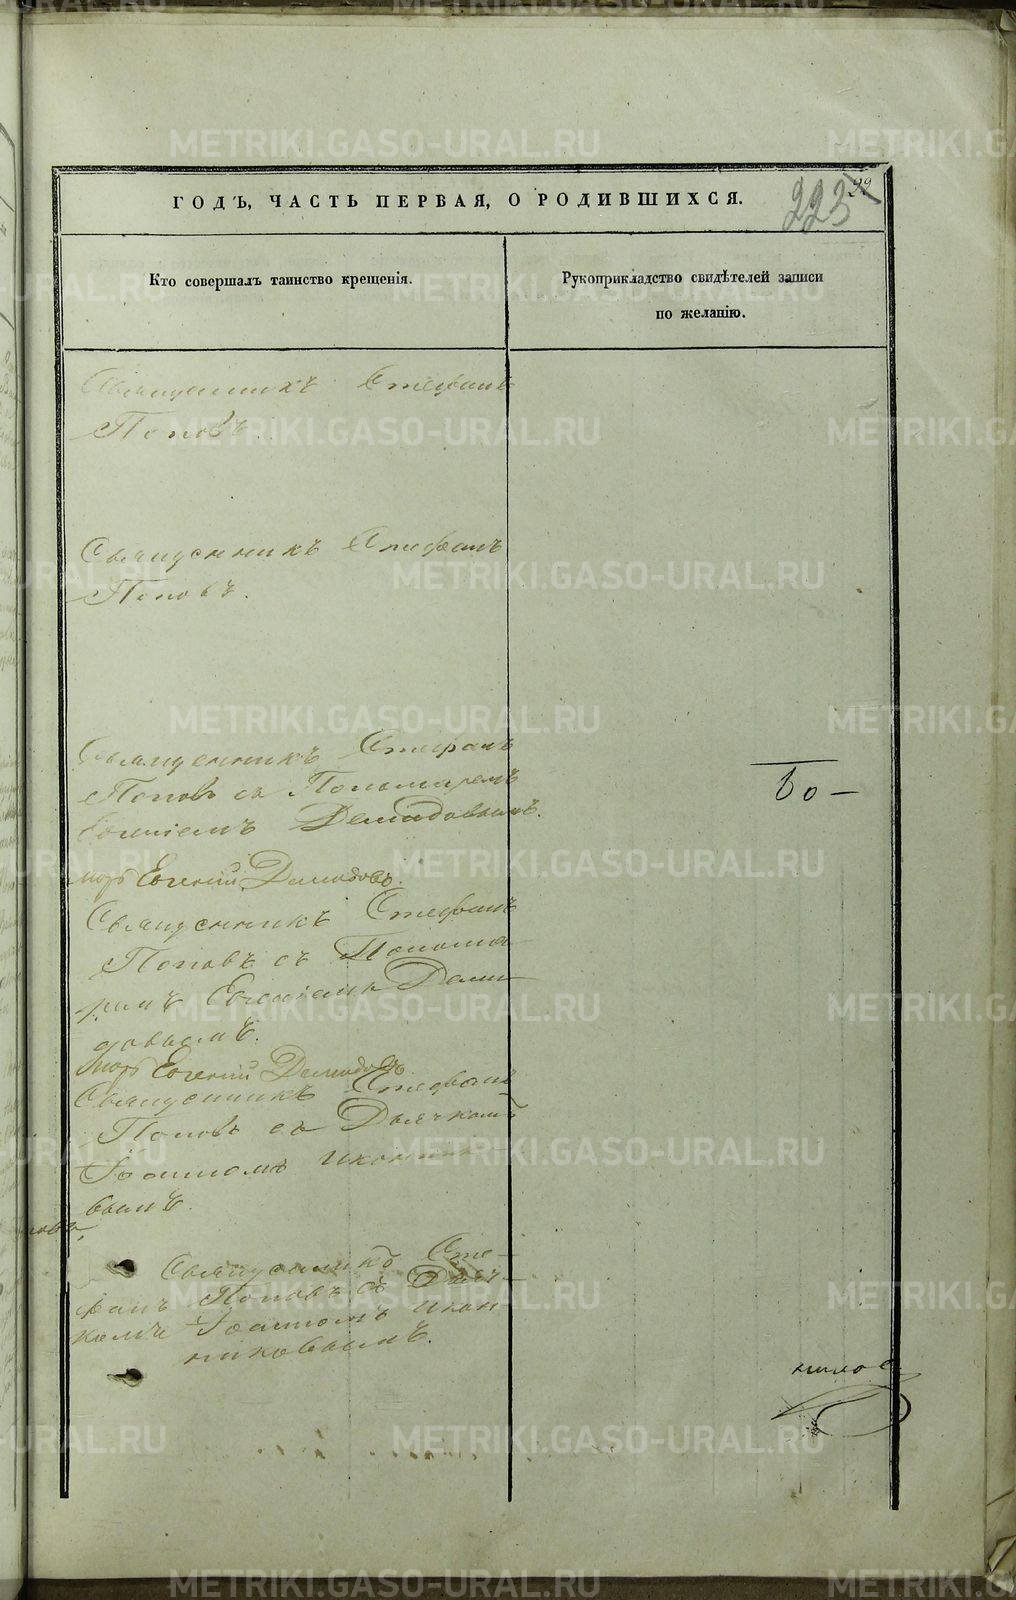 ГОДЪ, ЧАСТЬ ПЕРВАЯ, О РОДИВШИХСЯ.
223
22
Кто совершалъ таинство крещенія.
Рукоприкладство свидѣтелей записи
по желанію.
Священникъ Стефанъ
Поповъ.
Священникъ Стефанъ
Поповъ.
Священникъ Стефанъ
Поповъ съ Пономаремъ
Евгеніемъ Демидовымъ.
Бо —
Евгеній Демидовъ
Священникъ Стефанъ
Поповъ съ Понома-
ремъ Евгеніемъ Деми-
довымъ.
Евгеній Демидовъ
Священникъ Стефанъ
Поповъ съ Дьячкомъ
Іоанномъ Иконнико-
вымъ.
Священникъ Сте-
фанъ Поповъ съ Дьяч-
комъ Іоанномъ Икон-
никовымъ.
METRIKI.GASO-URAL.RU